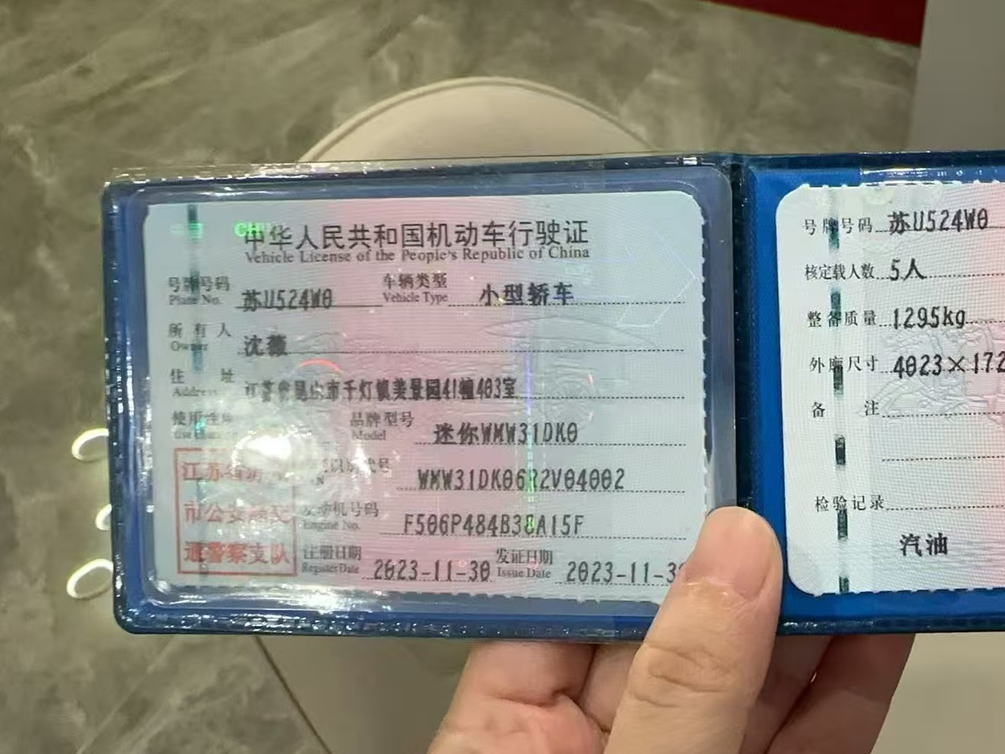 中华人民共和国机动车行驶证
Vehicle License of the People's Republic of China
号牌号码 苏U524W0 车辆类型 小型轿车
Plate No. Vehicle Type
所有人 沈薇
Owner
住址 江苏省昆山市千灯镇美景园41幢403室
Address
使用性质 品牌型号 迷你WMW31DK0
Model
WMW31DK06R2V04002
发动机号码 F506P484B38A15F
Engine No.
注册日期 2023-11-30 发证日期 2023-11-3
Register Date Issue Date
江苏省
市公安局交
通警察支队
号牌号码 苏U524W0
核定载人数 5人
整备质量 1295kg
外廓尺寸 4023×172
备注
检验记录
汽油